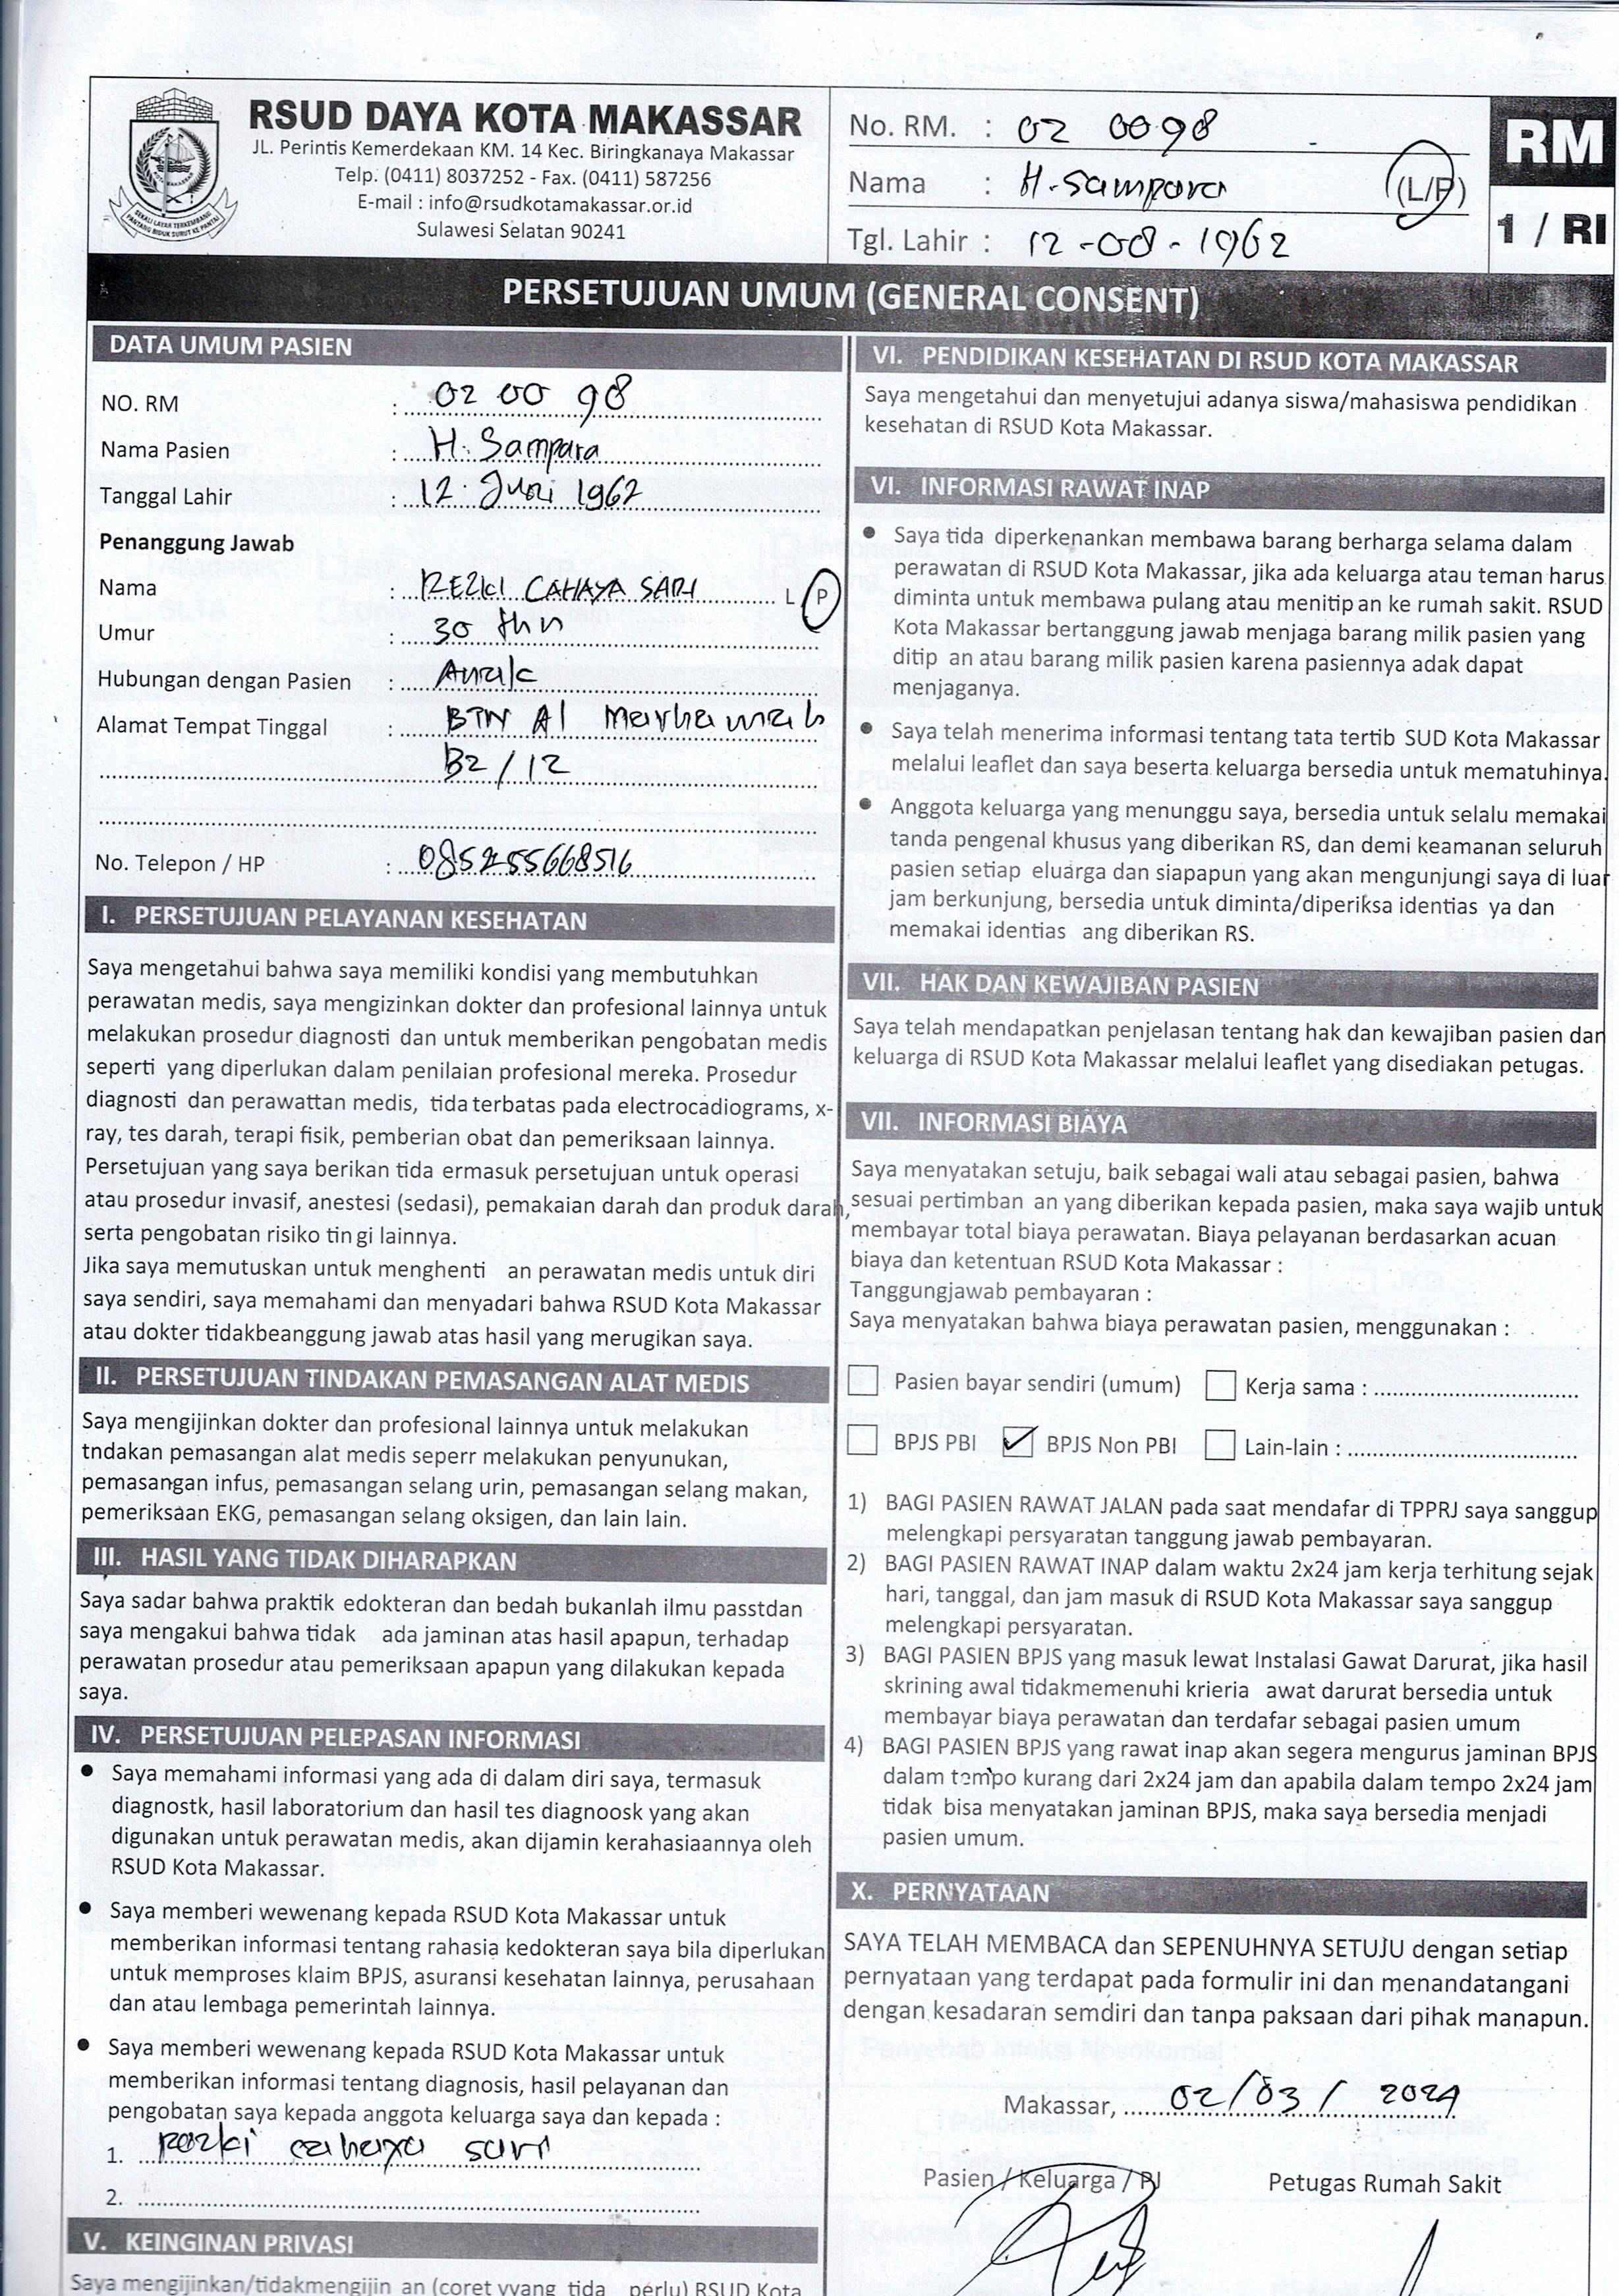 RSUD DAYA KOTA MAKASSAR
JL. Perintis Kemerdekaan KM. 14 Kec. Biringkanaya Makassar
Telp. (0411) 8037252 - Fax. (0411) 587256
E-mail : info@rsudkotamakassar.or.id
Sulawesi Selatan 90241
No. RM. : 02 0098
Nama : H. Sampara (L/P)
Tgl. Lahir : 12-08-1962
RM
1 / RI
PERSETUJUAN UMUM (GENERAL CONSENT)
DATA UMUM PASIEN
NO. RM : 02 00 98
Nama Pasien : H. Sampara
Tanggal Lahir : 12 Juni 1962
Penanggung Jawab
Nama : REZKI CAHAYA SARI L P
Umur : 30 thn
Hubungan dengan Pasien : Anak
Alamat Tempat Tinggal : BTN Al Marhamah
B2/12
No. Telepon / HP : 085255668516
I. PERSETUJUAN PELAYANAN KESEHATAN
Saya mengetahui bahwa saya memiliki kondisi yang membutuhkan
perawatan medis, saya mengizinkan dokter dan profesional lainnya untuk
melakukan prosedur diagnosti dan untuk memberikan pengobatan medis
seperti yang diperlukan dalam penilaian profesional mereka. Prosedur
diagnosti dan perawattan medis, tida terbatas pada electrocadiograms, x-
ray, tes darah, terapi fisik, pemberian obat dan pemeriksaan lainnya.
Persetujuan yang saya berikan tida ermasuk persetujuan untuk operasi
atau prosedur invasif, anestesi (sedasi), pemakaian darah dan produk darah,
serta pengobatan risiko tin gi lainnya.
Jika saya memutuskan untuk menghenti an perawatan medis untuk diri
saya sendiri, saya memahami dan menyadari bahwa RSUD Kota Makassar
atau dokter tidakbeanggung jawab atas hasil yang merugikan saya.
II. PERSETUJUAN TINDAKAN PEMASANGAN ALAT MEDIS
Saya mengijinkan dokter dan profesional lainnya untuk melakukan
tndakan pemasangan alat medis seperr melakukan penyunukan,
pemasangan infus, pemasangan selang urin, pemasangan selang makan,
pemeriksaan EKG, pemasangan selang oksigen, dan lain lain.
III. HASIL YANG TIDAK DIHARAPKAN
Saya sadar bahwa praktik edokteran dan bedah bukanlah ilmu passtdan
saya mengakui bahwa tidak ada jaminan atas hasil apapun, terhadap
perawatan prosedur atau pemeriksaan apapun yang dilakukan kepada
saya.
IV. PERSETUJUAN PELEPASAN INFORMASI
● Saya memahami informasi yang ada di dalam diri saya, termasuk
diagnostk, hasil laboratorium dan hasil tes diagnoosk yang akan
digunakan untuk perawatan medis, akan dijamin kerahasiaannya oleh
RSUD Kota Makassar.
● Saya memberi wewenang kepada RSUD Kota Makassar untuk
memberikan informasi tentang rahasia kedokteran saya bila diperlukan
untuk memproses klaim BPJS, asuransi kesehatan lainnya, perusahaan
dan atau lembaga pemerintah lainnya.
● Saya memberi wewenang kepada RSUD Kota Makassar untuk
memberikan informasi tentang diagnosis, hasil pelayanan dan
pengobatan saya kepada anggota keluarga saya dan kepada :
1. Rezki cahaya sari
2.
V. KEINGINAN PRIVASI
Saya mengijinkan/tidakmengijin an (coret yyang tida perlu) RSUD Kota
VI. PENDIDIKAN KESEHATAN DI RSUD KOTA MAKASSAR
Saya mengetahui dan menyetujui adanya siswa/mahasiswa pendidikan
kesehatan di RSUD Kota Makassar.
VI. INFORMASI RAWAT INAP
● Saya tida diperkenankan membawa barang berharga selama dalam
perawatan di RSUD Kota Makassar, jika ada keluarga atau teman harus
diminta untuk membawa pulang atau menitip an ke rumah sakit. RSUD
Kota Makassar bertanggung jawab menjaga barang milik pasien yang
ditip an atau barang milik pasien karena pasiennya adak dapat
menjaganya.
● Saya telah menerima informasi tentang tata tertib SUD Kota Makassar
melalui leaflet dan saya beserta keluarga bersedia untuk mematuhinya.
● Anggota keluarga yang menunggu saya, bersedia untuk selalu memakai
tanda pengenal khusus yang diberikan RS, dan demi keamanan seluruh
pasien setiap eluarga dan siapapun yang akan mengunjungi saya di luar
jam berkunjung, bersedia untuk diminta/diperiksa identias ya dan
memakai identias ang diberikan RS.
VII. HAK DAN KEWAJIBAN PASIEN
Saya telah mendapatkan penjelasan tentang hak dan kewajiban pasien dan
keluarga di RSUD Kota Makassar melalui leaflet yang disediakan petugas.
VII. INFORMASI BIAYA
Saya menyatakan setuju, baik sebagai wali atau sebagai pasien, bahwa
sesuai pertimban an yang diberikan kepada pasien, maka saya wajib untuk
membayar total biaya perawatan. Biaya pelayanan berdasarkan acuan
biaya dan ketentuan RSUD Kota Makassar :
Tanggungjawab pembayaran :
Saya menyatakan bahwa biaya perawatan pasien, menggunakan :
☐ Pasien bayar sendiri (umum) ☐ Kerja sama :
☐ BPJS PBI ☑ BPJS Non PBI ☐ Lain-lain :
1) BAGI PASIEN RAWAT JALAN pada saat mendafar di TPPRJ saya sanggup
melengkapi persyaratan tanggung jawab pembayaran.
2) BAGI PASIEN RAWAT INAP dalam waktu 2x24 jam kerja terhitung sejak
hari, tanggal, dan jam masuk di RSUD Kota Makassar saya sanggup
melengkapi persyaratan.
3) BAGI PASIEN BPJS yang masuk lewat Instalasi Gawat Darurat, jika hasil
skrining awal tidakmemenuhi krieria awat darurat bersedia untuk
membayar biaya perawatan dan terdafar sebagai pasien umum
4) BAGI PASIEN BPJS yang rawat inap akan segera mengurus jaminan BPJS
dalam tempo kurang dari 2x24 jam dan apabila dalam tempo 2x24 jam
tidak bisa menyatakan jaminan BPJS, maka saya bersedia menjadi
pasien umum.
X. PERNYATAAN
SAYA TELAH MEMBACA dan SEPENUHNYA SETUJU dengan setiap
pernyataan yang terdapat pada formulir ini dan menandatangani
dengan kesadaran semdiri dan tanpa paksaan dari pihak manapun.
Makassar, 02/03/ 2024
Pasien / Keluarga / PJ Petugas Rumah Sakit